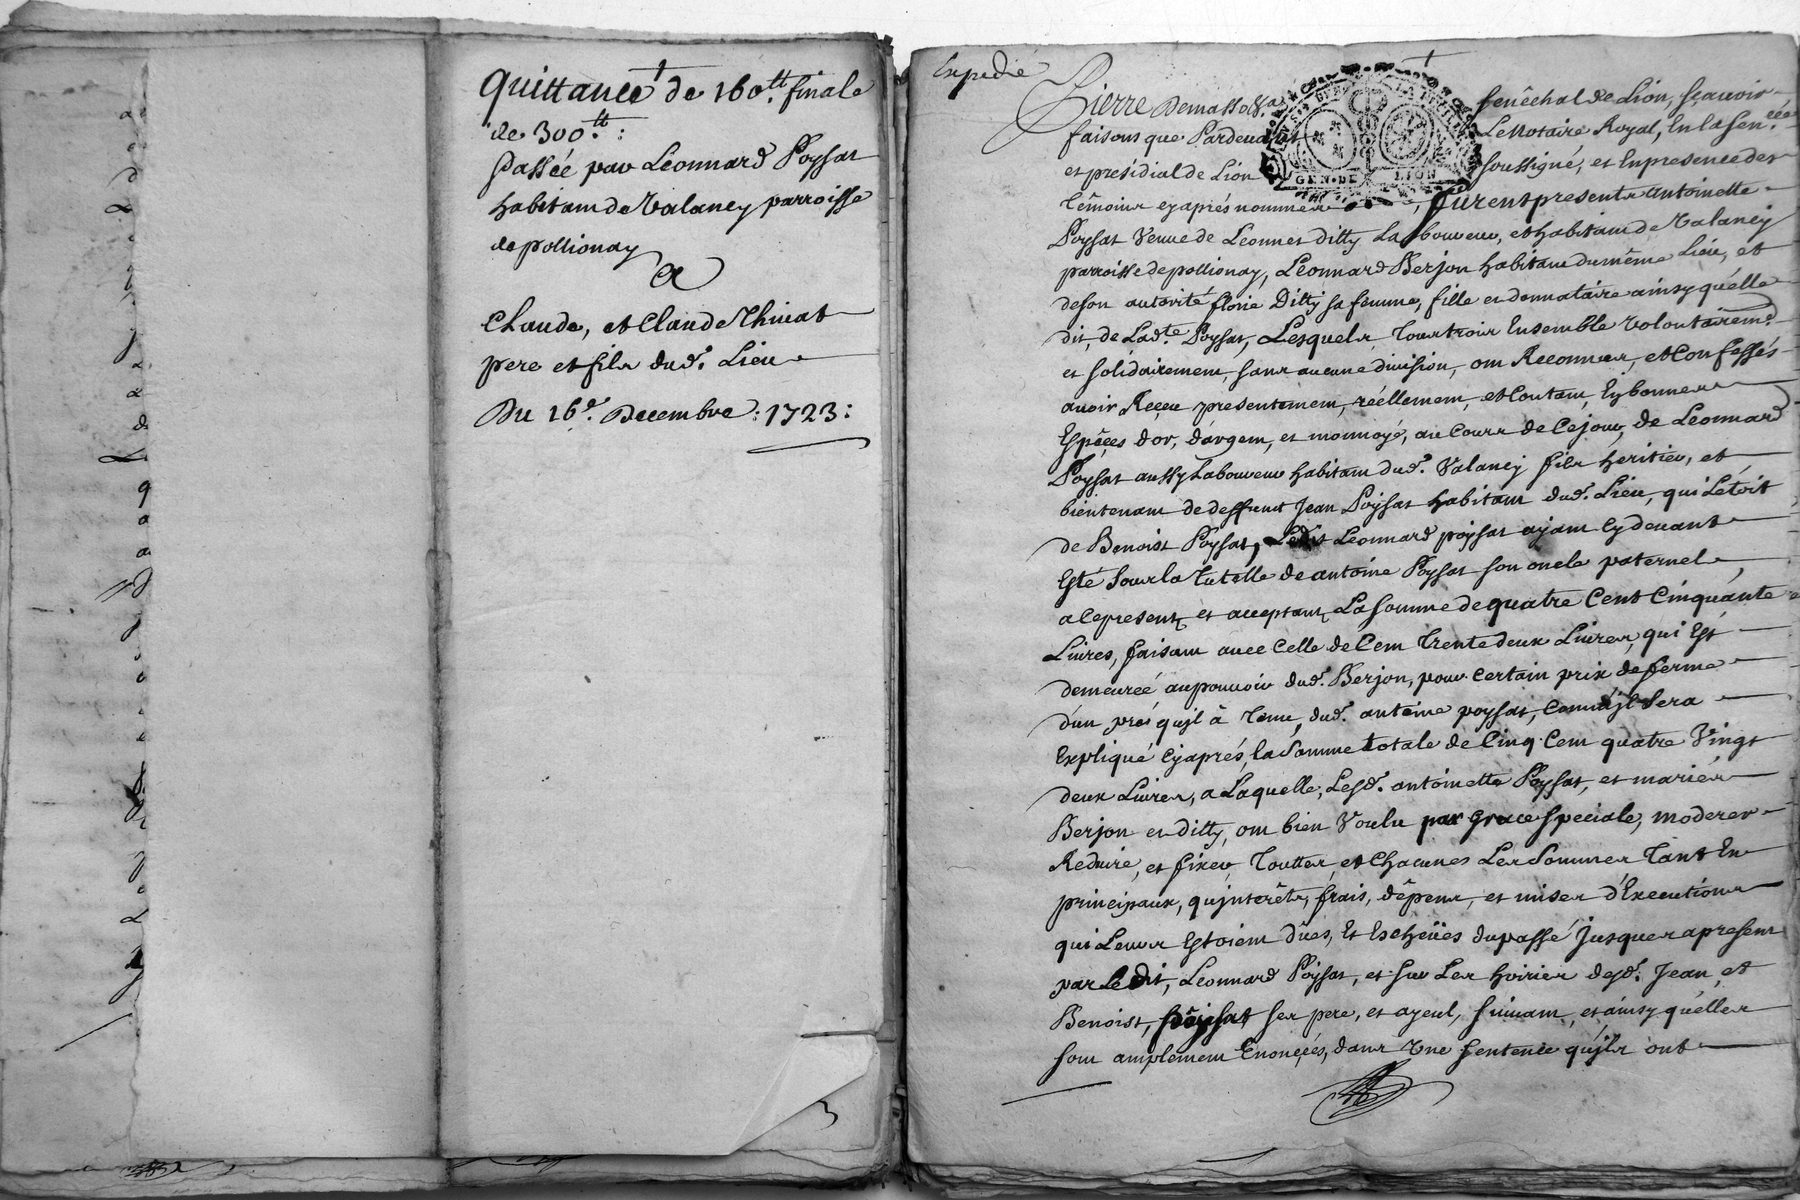 Quittance de 160tt. finale
de 300tt:
Passée par Léonnard Poysat
habitant de Valaney parroisse
de pollionay
a
Claude, et Claude Thinat
pere et fils dud. Lieu
Du 16e. Decembre : 1723 :
3
Expedié
Pierre Demasso
senêchal de Lion, sçavoir
faisons que Pardevant
Le Notaire Royal, En la Sen.
et présidial de Lion
soussigné, et En presence des
GEN. DE LION
têmoins cy aprés nommés, furent presents antoinette
Poysat Veuve de Leonnet ditty Laboureur, et habitant de Valaney
parroisse de pollionay, Léonnard Berjon habitant du même Lieu, et
de son autorité florie Ditty sa femme, fille et donnataire ainsy qu'elle
dit, de Lad.te Poysat, Lesquels Tous trois Ensemble volontairemt.
et solidairement, sans aucune division, ont Reconnus, et Confessés
avoir Reçeu presentement, réellement, et Contant, En bonnes
Espêces d'or, d'argent, et monnoyé, au Cours de Cejour, de Leonnard
Poysat aussy Laboureur habitant dud. Valaney fils heritier, et
bientenant de deffunct Jean Poysat habitant dud. Lieu, qui Létoit
de Benoist Poysat, Ledit Leonnard poysat ayant Cy devant
Esté Sous la Tutelle de antoine Poysat son oncle paternel,
a Ce present, et acceptant, La Somme de quatre Cent Cinquante
Livres, faisant avec Celle de Cent Trente deux Livres, qui Est
demeurée au pouvoir dud. Berjon, pour Certain prix de ferme
d'un pré qu'jl à Tenu, dud. antoine poysat, Comm'jl Sera
Expliqué Cy aprés, la Somme totale de Cinq Cent quatre Vingt
deux Livres, a Laquelle, Lesd. antoinette Poysat, et mariés
Berjon et ditty, ont bien Voulu par Grace speciale, moderer
Reduire, et fixer Touttes, et Chacunes Les Sommes Tant En
principaux, qu'jnterêts, frais, dêpens, et mises d'Execution
qui Leurs Estoient dûes, Et Escheües du passé Jusques a present
par Ledit, Léonnard Poysat, et sur Les hoiries desd. Jean, et
Benoist, Poysat ses pere, et ayeul, suivant, et ainsy qu'elles
sont amplement Enoncées, dans Une Sentence qu'jls ont